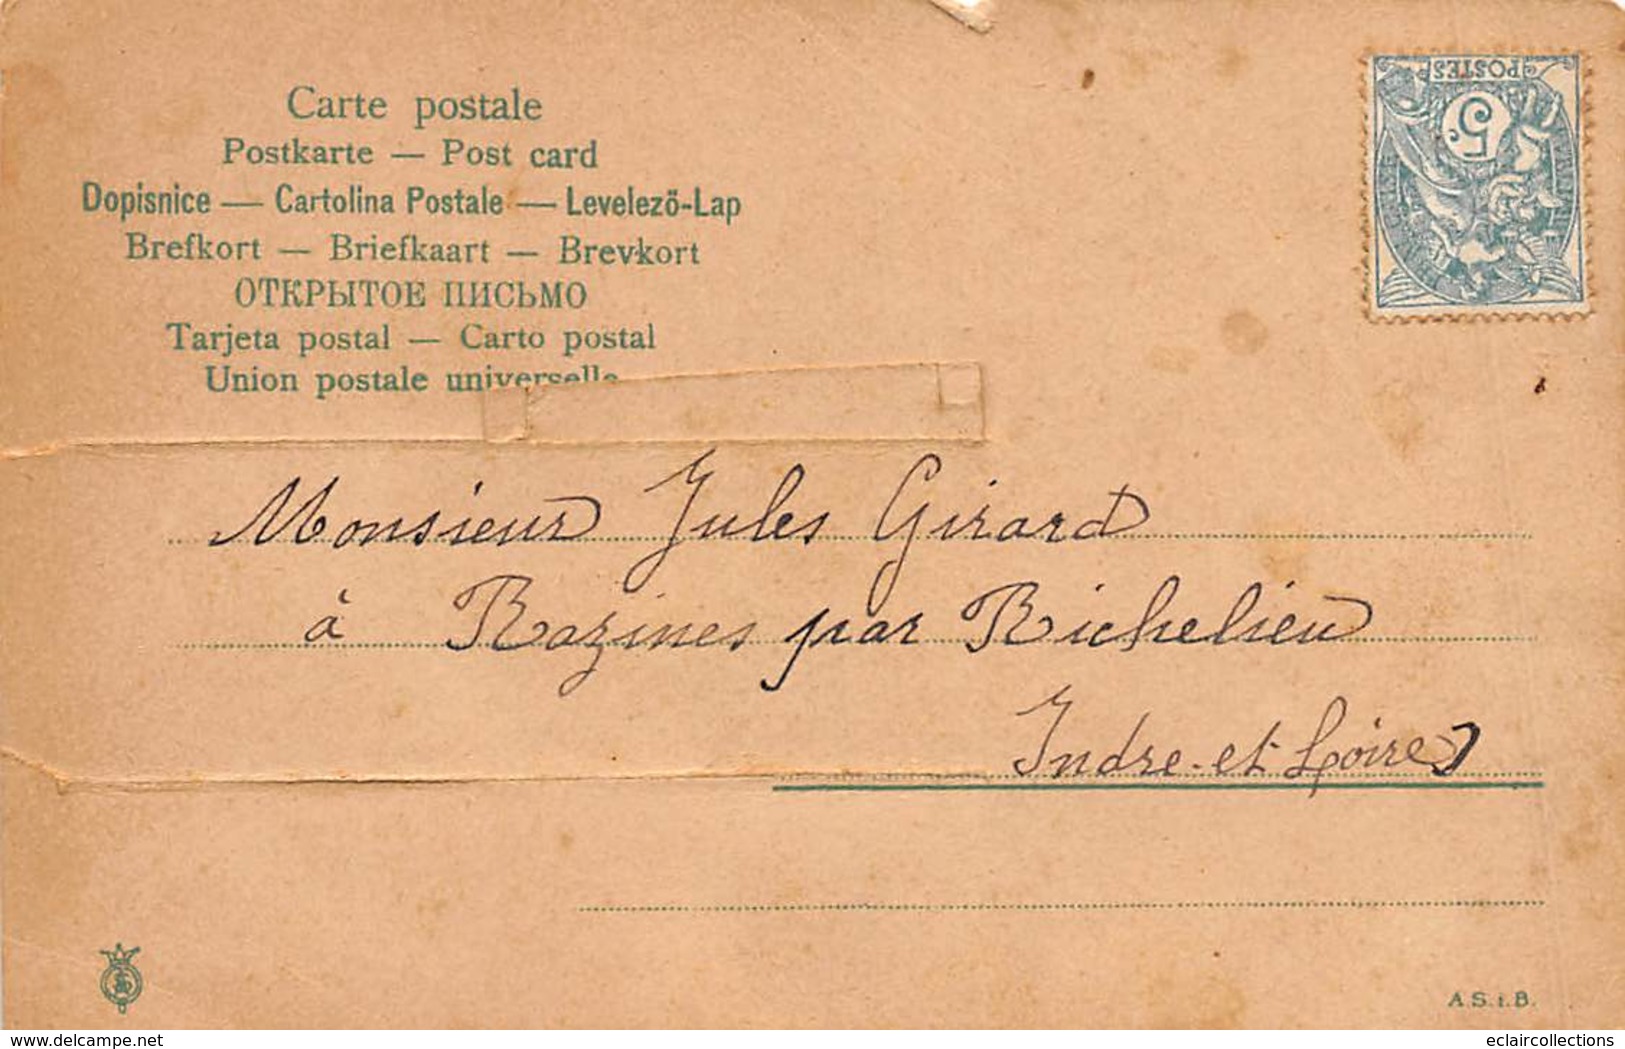 Carte postale
Postkarte — Post card
Dopisnice — Cartolina Postale — Levelező-Lap
Brefkort — Briefkaart — Brevkort
ОТКРЫТОЕ ПИСЬМО
Tarjeta postal — Carto postal
Union postale universelle
POSTES
5 c.
Monsieur Jules Girard
à Razines par Richelieu
Indre-et Loire
A.S.i.B.
delcampe.net
eclaircollections